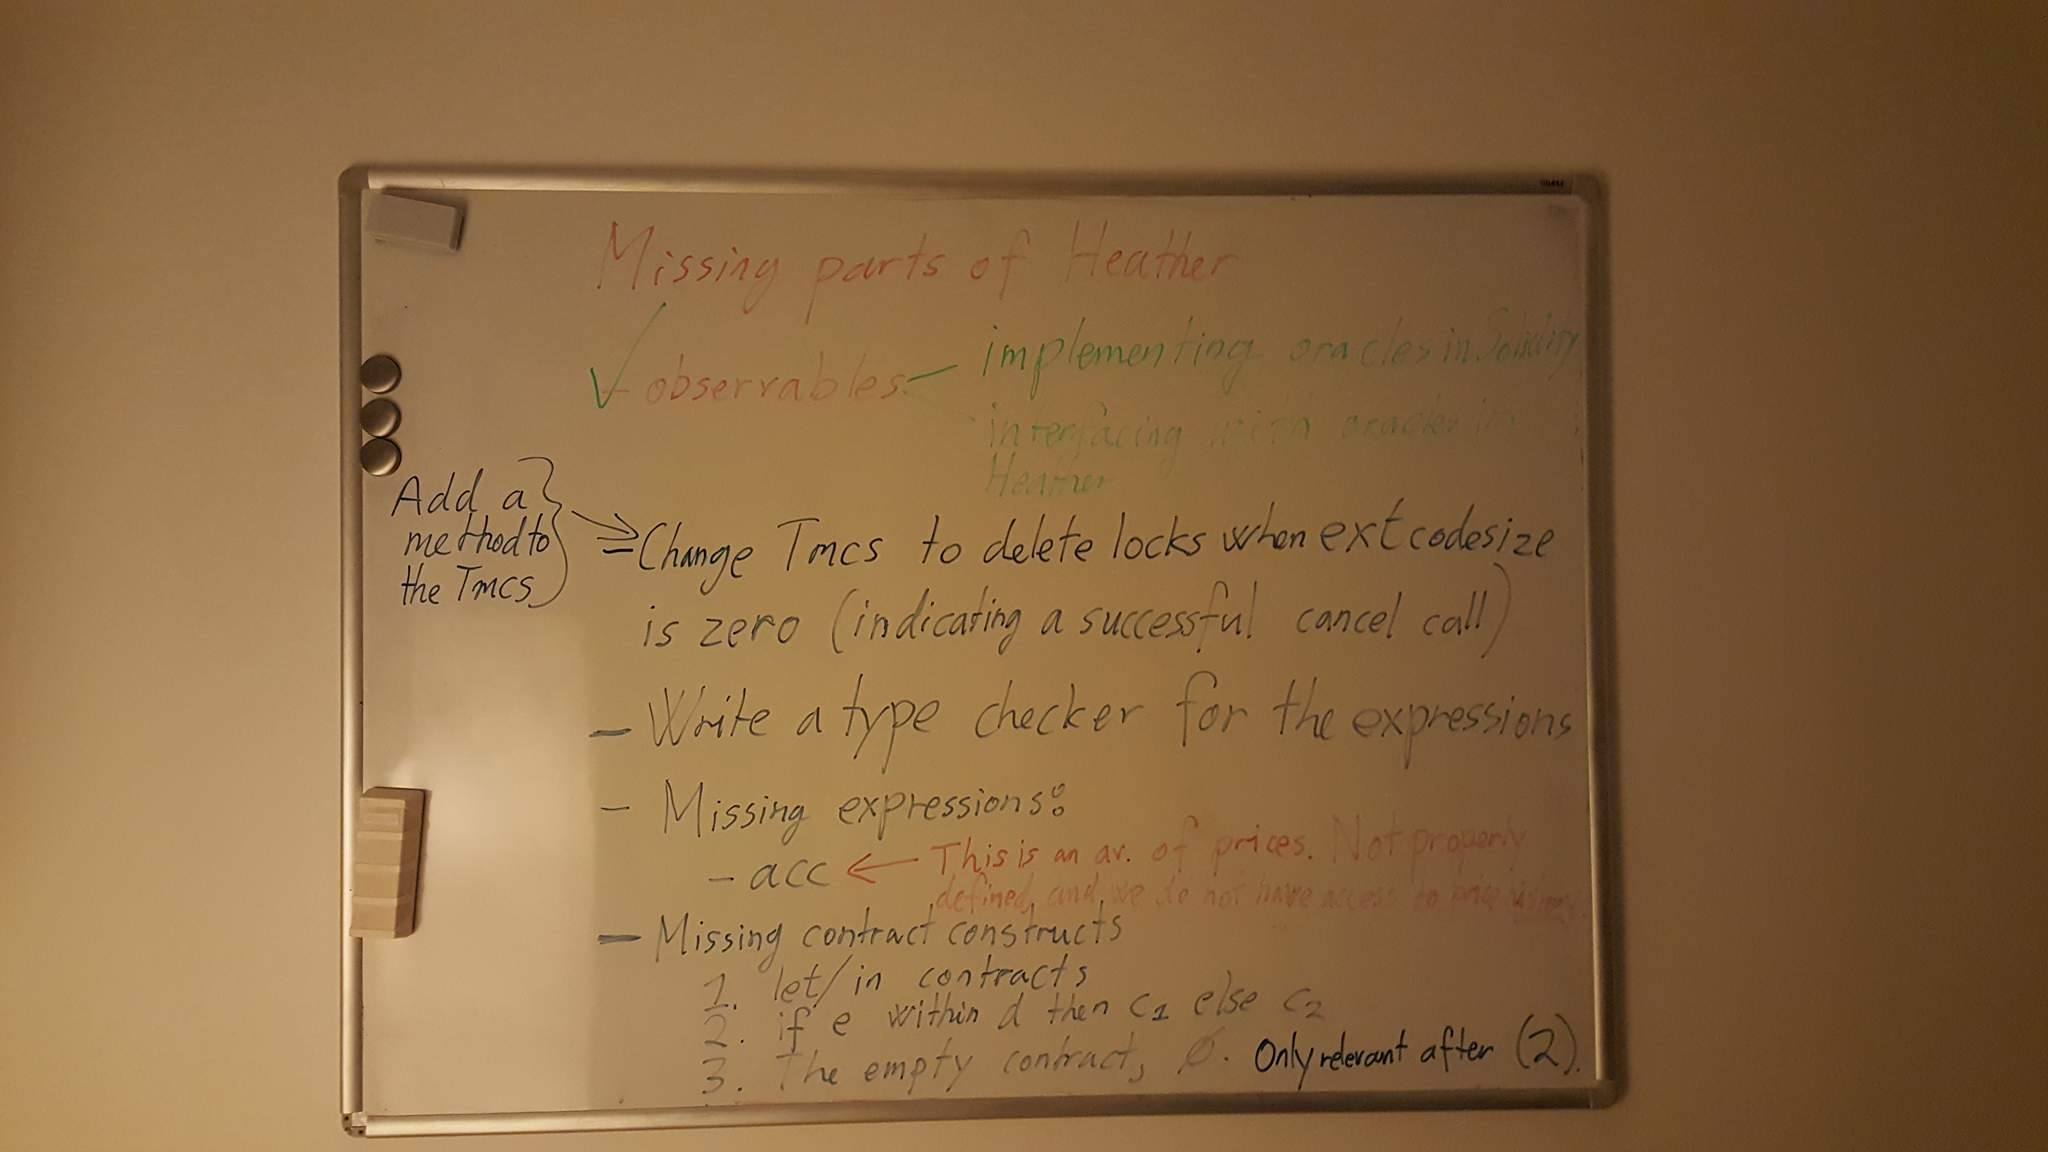 Missing parts of Heather
- observables
implementing oracles in Solidity
interfacing with oracles in
Heather
Add a
method to
the Tmcs
- Change Tmcs to delete locks when extcodesize
is zero (indicating a successful cancel call)
- Write a type checker for the expressions
- Missing expressions:
- acc ← This is an av. of prices. Not properly
defined, and we do not have access to price
- Missing contract constructs
1. let/in contracts
2. if e within d then c₁ else c₂
3. The empty contract, ∅. Only relevant after (2).